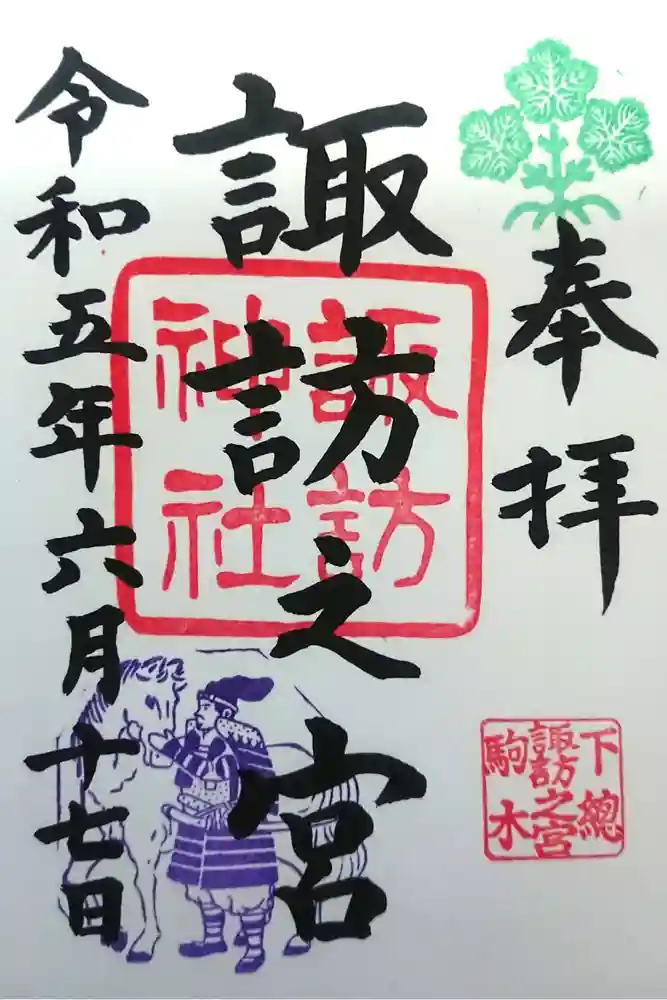 奉拝
諏訪之宮
令和五年六月十七日
諏訪
神社
下總
諏訪之宮
駒木